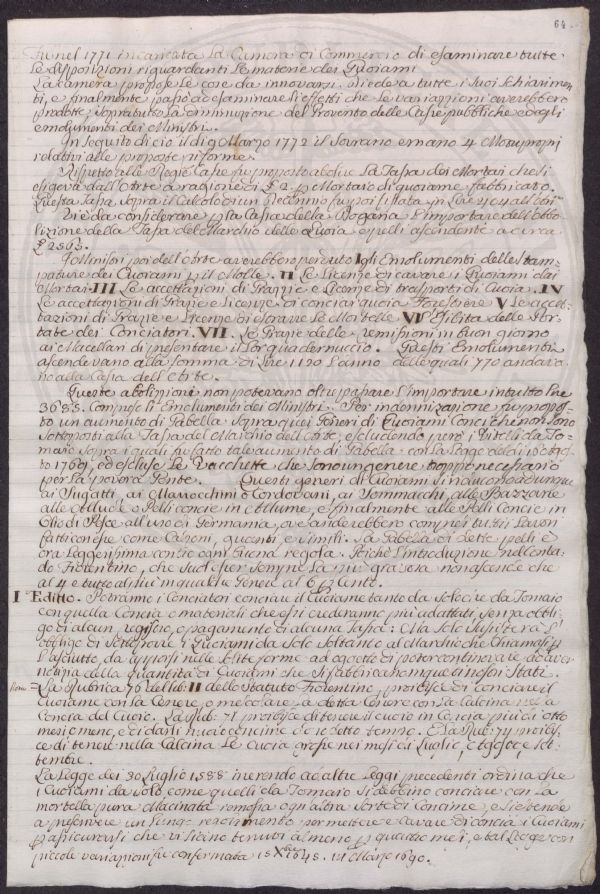 64
Fu nel 1771 incaricata La Camera di Commercio di esaminare tutte
Le disposizioni riguardanti le materie dei Quoiami
La Camera propose Le cose da innovarsi, diede a tutte i suoi schiarimen
ti, e finalmente passò ad esaminare gli effetti che le variazioni averebbero
prodotte, sopratutto la diminuzione del Provento delle Casse pubbliche e degli
emolumenti dei Ministri.
In seguito di ciò il dì 9 Marzo 1772 il Sovrano emanò 4 Motupropri
relativi alle proposte riforme.
Rispetto alle Regie Casse fu proposto abolire La Tassa dei Mortai che si
esigeva dall'Arte a ragione di £ 2. p Mortaio di quoiame fabbricato.
Questa Tassa, sopra il Calcolo di un Decennio fu poi fissata in Lire 404 all'
Vi è da considerare p la Cassa della Dogana L'importare dell'abo
lizione della Tassa del Marchio delle Quoia e pelli ascendente a circa
£ 2563.
I Ministri poi dell'Arte averebbero perduto I gli Emolumenti delle Stam
pature dei Quoiami II Le Licenze di cavare i Quoiami dai
Mortai. III Le accettazioni di Grazie e Licenze di trasporti di Cuoia. IV
Le accettazioni di Grazie e Licenze di conciar quoia Forestiere V Le accet
tazioni di Grazie e Licenze di Le Mortelle VI delle Por
tate dei Conciatori. VII. Le Grazie delle remissioni in buon giorno
ai Macellari di presentare il Lor quadernuccio. Questi Emolumenti
ascendevano alla somma di Lire 1190 L'anno delle quali 770 andava
no alla Cassa dell'Arte.
Queste abolizioni non potevano oltrepassare L'importare in tutto Lire
3688. Compresi li Emolumenti dei Ministri. Per indennizzazione fu propos
to un aumento di Gabella sopra quei Generi di Quoiami Conci che non sono
sottoposti alla Tassa del Marchio dell'Arte, escludendo però i Vitelli da To
maio sopra i quali fu fatto tale aumento di Gabella con la Legge del dì 10 
to 1769, ed escluse Le Vacchette che sono un genere troppo necessario
per la povera Gente. Questi generi di Quoiami si riducono dunque
ai Sugatti, ai Marocchini o Cordovani, ai Sommacchi, alle Bazzane
alle Pelli concie in Allume, e finalmente alle Pelli Concie in
Olio di Pesce all'uso di Germania, ove anderebbero compresi tutti i Lavori
fatti con esse come Calzoni, guanti, e simili. La Gabella di dette pelli è
ora Leggerissima contro ogni buona regola. Poichè L'introduzione nel Conta
do Fiorentino, che suol' esser sempre La più gravosa non ascende che
al 4 e tutto al più in qualche Genere al 6 p Cento.
I Editto. Potranno i Conciatori conciare il Quoiame tanto da Solo che da Tomaio
con quella Concia o materiali che essi crederanno più adattati, senza obbli
go di alcun registro, o pagamento di alcuna Tassa: Ma solo sussisterà L'
obbligo di sottoporre i Quoiami da Solo soltanto al Marchio che chiamasi
L'asciutto da apporsi nelle solite forme ad oggetto di poter continovare ad aver
notizia della quantità di Quoiami che si fabbricano in questi nostri Stati.
La Rubrica 70 del lib: II dello Statuto Fiorentino, proibisce di conciare il
Quoiame con la Cenere, o mescolare a detta Cenere con La Calcina nella
Concia del Cuoio. La Rub: 71 proibisce di tenere il cuoio in Concia più di otto
mesi o meno, e di darli nuovo concime detto tempo. E La Rub: 74 proibis
ce di tenere nella Calcina Le Cuoia grosse nei mesi di Luglio, Agosto e Set
tembre.
La Legge dei 30 Luglio 1588 inerendo ad altre Leggi precedenti ordina che
i Quoiami da Solo come quelli da Tomaio si debbino conciare con La
mortella pura Macinata remossa ogni altra sorte di Concime, e si estende
a prescrivere un Lungo regolamento per mettere e Cavare di concia i Quoiami
p assicurarsi che vi sieno tenuti almeno p quattro mesi, e tal Legge con
piccole variazioni fu confermata 15 Xbre 1645. 14 Marzo 1690.